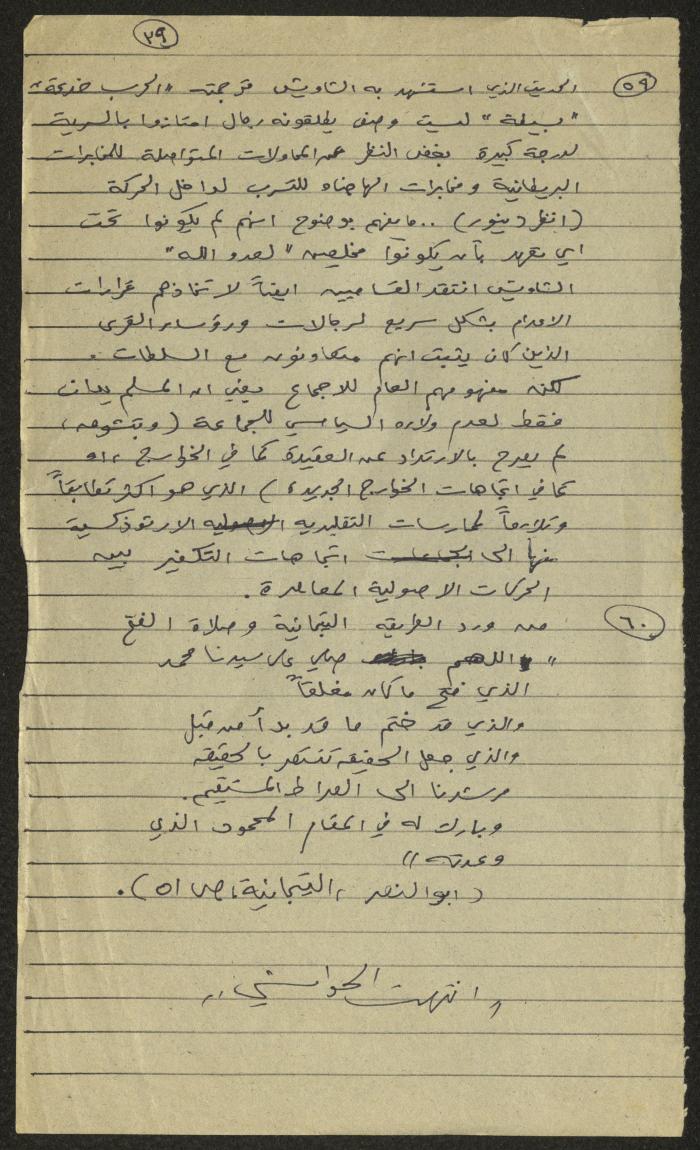 ٣٩
٥٩ الحديث الذي استشهد به الشاويش ترجمته "الحرب خدعة"
"بسيطة" ليست وصف يطلقونه رجال امتازوا بالسرية
لدرجة كبيرة بغض النظر عن المحاولات المتواصلة للمخابرات
البريطانية ومخابرات الهاجناه للتسرب لداخل الحركة
(انظر دينور) .. بوضوح انهم لم يكونوا تحت
اي تعهد بأن يكونوا مخلصين "لعدو الله"
الشاويش انتقد القساميين ايضاً لاتخاذهم قرارات
الاعدام بشكل سريع لرجالات ورؤساء القرى
الذين كان يثبت انهم متعاونون مع السلطات.
لكن مفهومهم العام للاجماع يعني ان المسلم يدان
فقط لعدم ولاءه السياسي للجماعة (
لم يصرح بالارتداد عن العقيدة كما في الخوارج، او
كما في اتجاهات الخوارج الجديدة) الذي هو اكثر تطابقاً
وتلازماً لممارسات التقليدية الارثوذكسية
منها الى اتجاهات التكفير بين
الحركات الاصولية المعاصرة.
٦٠ من ورد الطريقه التيجانية وصلاة الفتح
"اللهم صلي على سيدنا محمد
الذي فتح ما كان مغلقاً
والذي قد ختم ما قد بدأ من قبل
والذي جعل الحقيقه تنتصر بالحقيقه
مرشدنا الى الصراط المستقيم.
وبارك له في المقام المحمود الذي
وعدته"
(ابو النصر، التيجانية، ص ٥١).
"انتهت الحواشي"